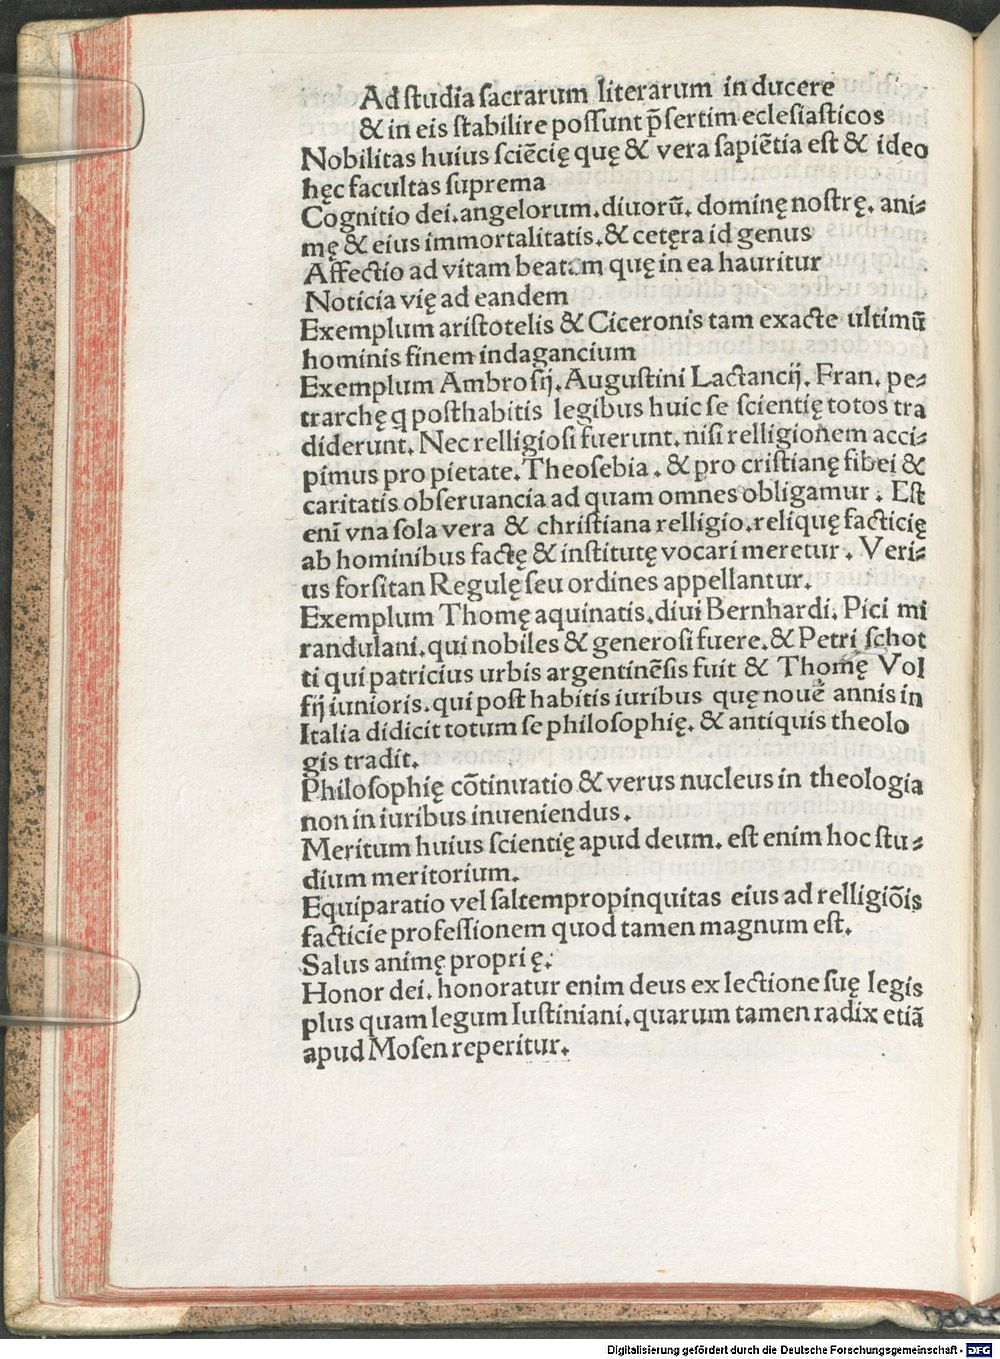 Ad ſtudia ſacrarum literarum in ducere
& in eis ſtabilire poſſunt p̄ſertim eclesiaſticos
Nobilitas huius ſciēcię quę & vera ſapiētia eſt & ideo
hęc facultas ſuprema
Cognitio dei. angelorum. diuorū. dominę noſtrę. ani⸗
mę & eius immortalitatis. & cetęra id genus
Affectio ad vitam beatam quę in ea hauritur
Noticia vię ad eandem
Exemplum ariſtotelis & Ciceronis tam exacte ultimū
hominis finem indagancium
Exemplum Ambroſij. Auguſtini Lactancij. Fran. pe⸗
trarchę q poſthabitis legibus huic ſe ſcientię totos tra
diderunt. Nec relligioſi fuerunt. niſi relligionem acci⸗
pimus pro pietate. Theoſebia. & pro criſtianę fibei &
caritatis obſeruancia ad quam omnes obligamur. Eſt
enī vna ſola vera & chriſtiana relligio. reliquę facticię
ab hominibus factę & inſtitutę vocari meretur. Veri⸗
us forſitan Regulę ſeu ordines appellantur.
Exemplum Thomę aquinatis. diui Bernhardi. Pici mi
randulani. qui nobiles & generoſi fuere. & Petri ſchot
ti qui patricius urbis argentinēſis fuit & Thomę Vol
fij iunioris. qui poſt habitis iuribus quę nouē annis in
Italia didicit totum ſe philoſophię. & antiquis theolo
gis tradit.
Philoſophię cōtinuatio & verus nucleus in theologia
non in iuribus inueniendus.
Meritum huius ſcientię apud deum. eſt enim hoc ſtu⸗
dium meritorium.
Equiparatio vel ſaltem propinquitas eius ad relligiōis
facticie profeſſionem quod tamen magnum eſt.
Salus animę propri ę.
Honor dei. honoratur enim deus ex lectione ſuę legis
plus quam legum Iuſtiniani. quarum tamen radix etiā
apud Moſen reperitur.
Digitalisierung gefördert durch die Deutsche Forschungsgemeinschaft - DFG